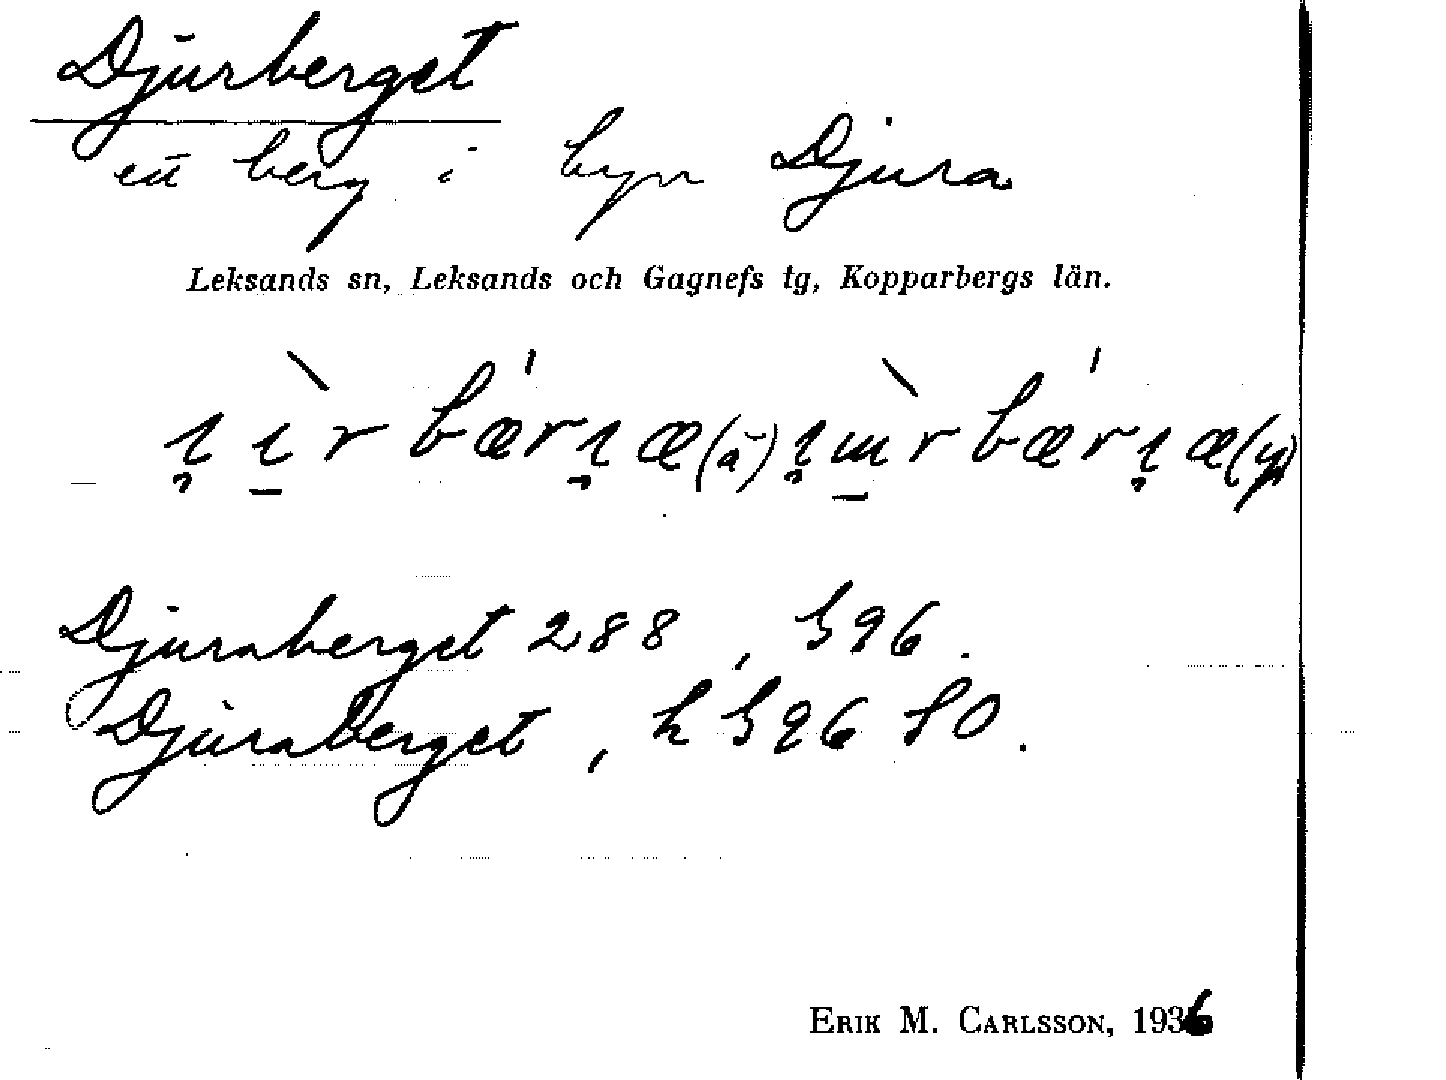 Djurberget
ett berg i byn Djura
Leksands sn, Leksands och Gagnefs tg, Kopparbergs län.
Djuraberget 288, 596.
Djuraberget, h 596 SO.
ERIK M. CARLSSON, 1936